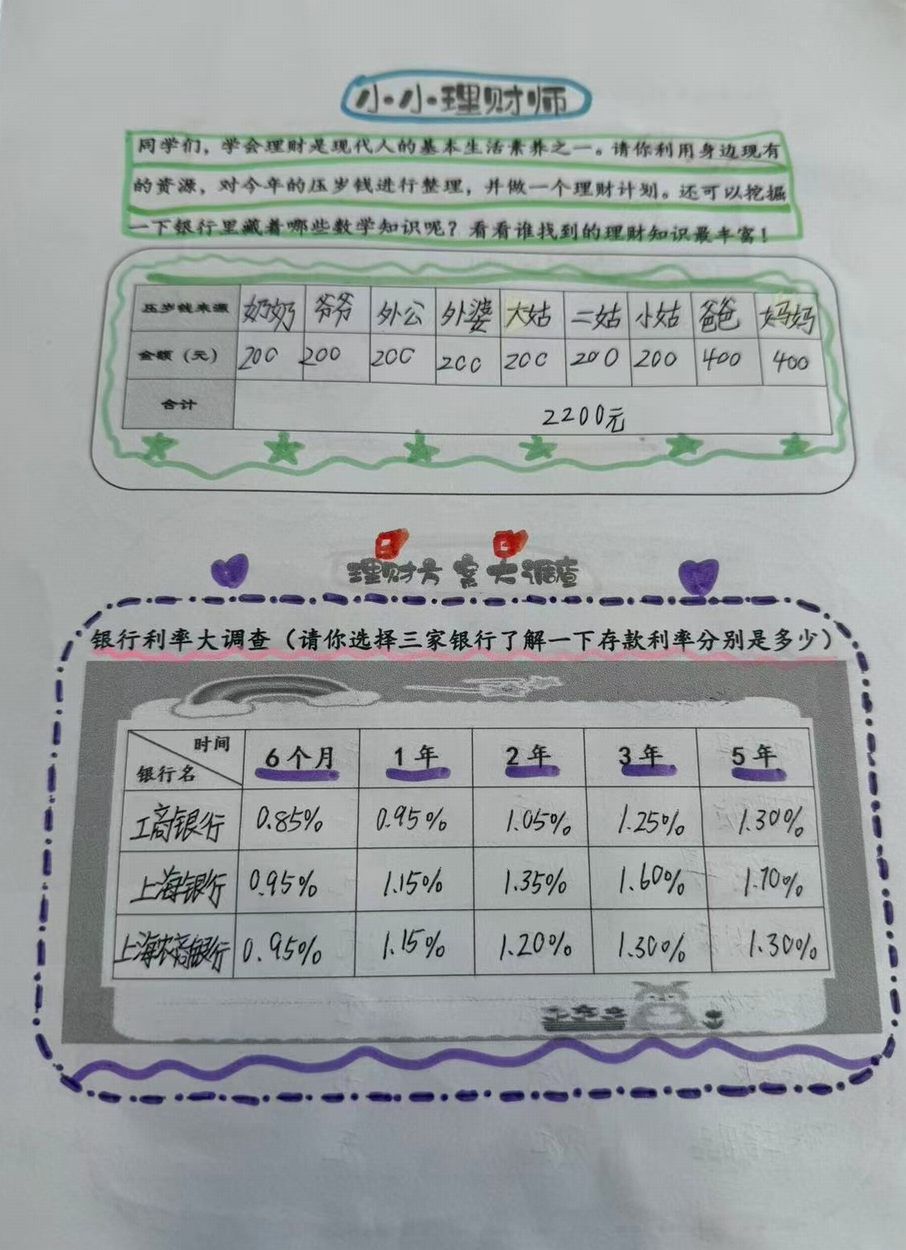 小小理财师
同学们，学会理财是现代人的基本生活素养之一。请你利用身边现有
的资源，对今年的压岁钱进行整理，并做一个理财计划。还可以挖掘
一下银行里藏着哪些数学知识呢？看看谁找到的理财知识最丰富！
压岁钱来源 奶奶 爷爷 外公 外婆 大姑 二姑 小姑 爸爸 妈妈
金额（元） 200 200 200 200 200 200 200 400 400
合计 2200元
理财方案大调查
银行利率大调查（请你选择三家银行了解一下存款利率分别是多少）
时间 银行名 6个月 1年 2年 3年 5年
工商银行 0.85% 0.95% 1.05% 1.25% 1.30%
上海银行 0.95% 1.15% 1.35% 1.60% 1.70%
上海农商银行 0.95% 1.15% 1.20% 1.30% 1.30%